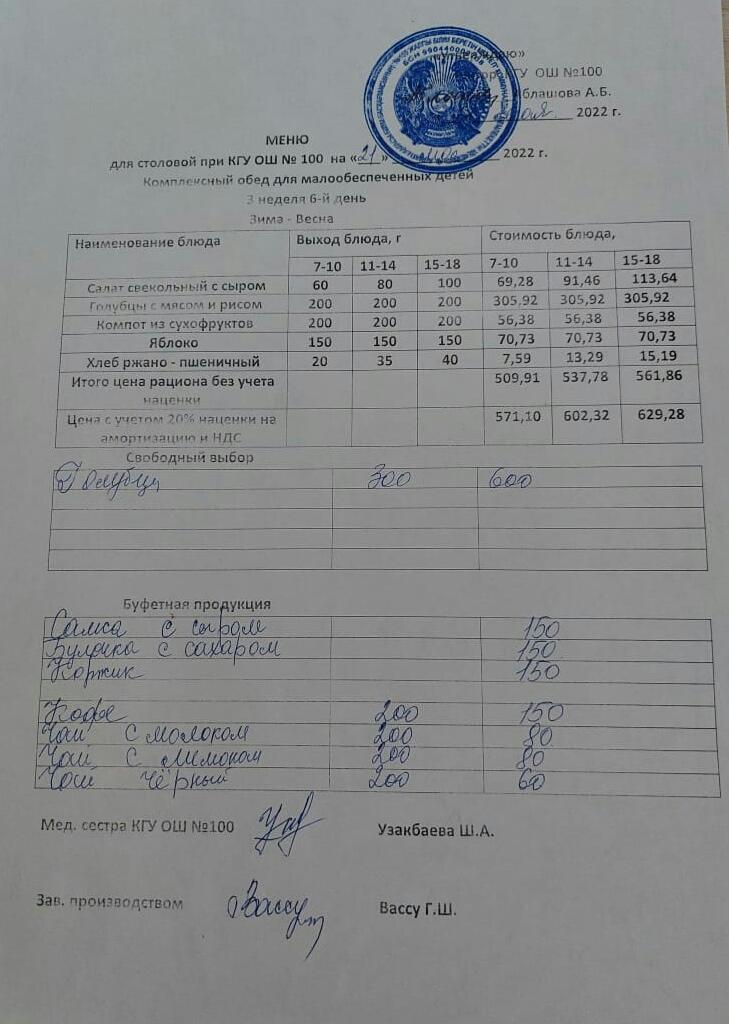 «Утверждаю»
КГУ ОШ №100
Аблашова А.Б.
2022 г.
МЕНЮ
для столовой при КГУ ОШ № 100 на «21» 2022 г.
Комплексный обед для малообеспеченных детей
3 неделя 6-й день
Зима - Весна
Наименование блюда Выход блюда, г Стоимость блюда,
7-10 11-14 15-18 7-10 11-14 15-18
Салат свекольный с сыром 60 80 100 69,28 91,46 113,64
Голубцы с мясом и рисом 200 200 200 305,92 305,92 305,92
Компот из сухофруктов 200 200 200 56,38 56,38 56,38
Яблоко 150 150 150 70,73 70,73 70,73
Хлеб ржано - пшеничный 20 35 40 7,59 13,29 15,19
Итого цена рациона без учета 509,91 537,78 561,86
наценки
Цена с учетом 20% наценки на 571,10 602,32 629,28
амортизацию и НДС
Свободный выбор
Голубцы 300 600
Буфетная продукция
Самса с сыром 150
Булочка с сахаром 150
Коржик 150
Кофе 200 150
Чай с молоком 200 80
Чай с лимоном 200 80
Чай чёрный 200 60
Мед. сестра КГУ ОШ №100 Узакбаева Ш.А.
Зав. производством Вассу Вассу Г.Ш.